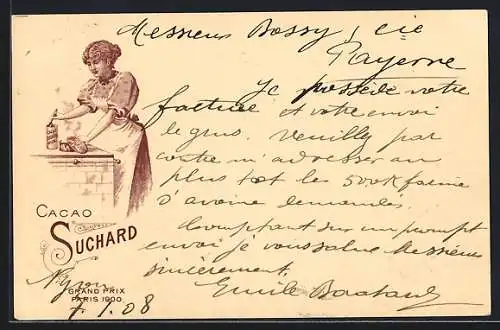 Messieurs Bossy, cie
Payerne
Je possède votre
facture et votre envoi
le grus. Veuilly par
contre m'adresser au
plus tôt les 500K farine
d'avoine demandés.
Comptant sur un prompt
envoi je vous salue Messieurs
sincèrement.
Emile
CACAO
SUCHARD
GRAND PRIX
PARIS 1900
Nyon
7.1.08